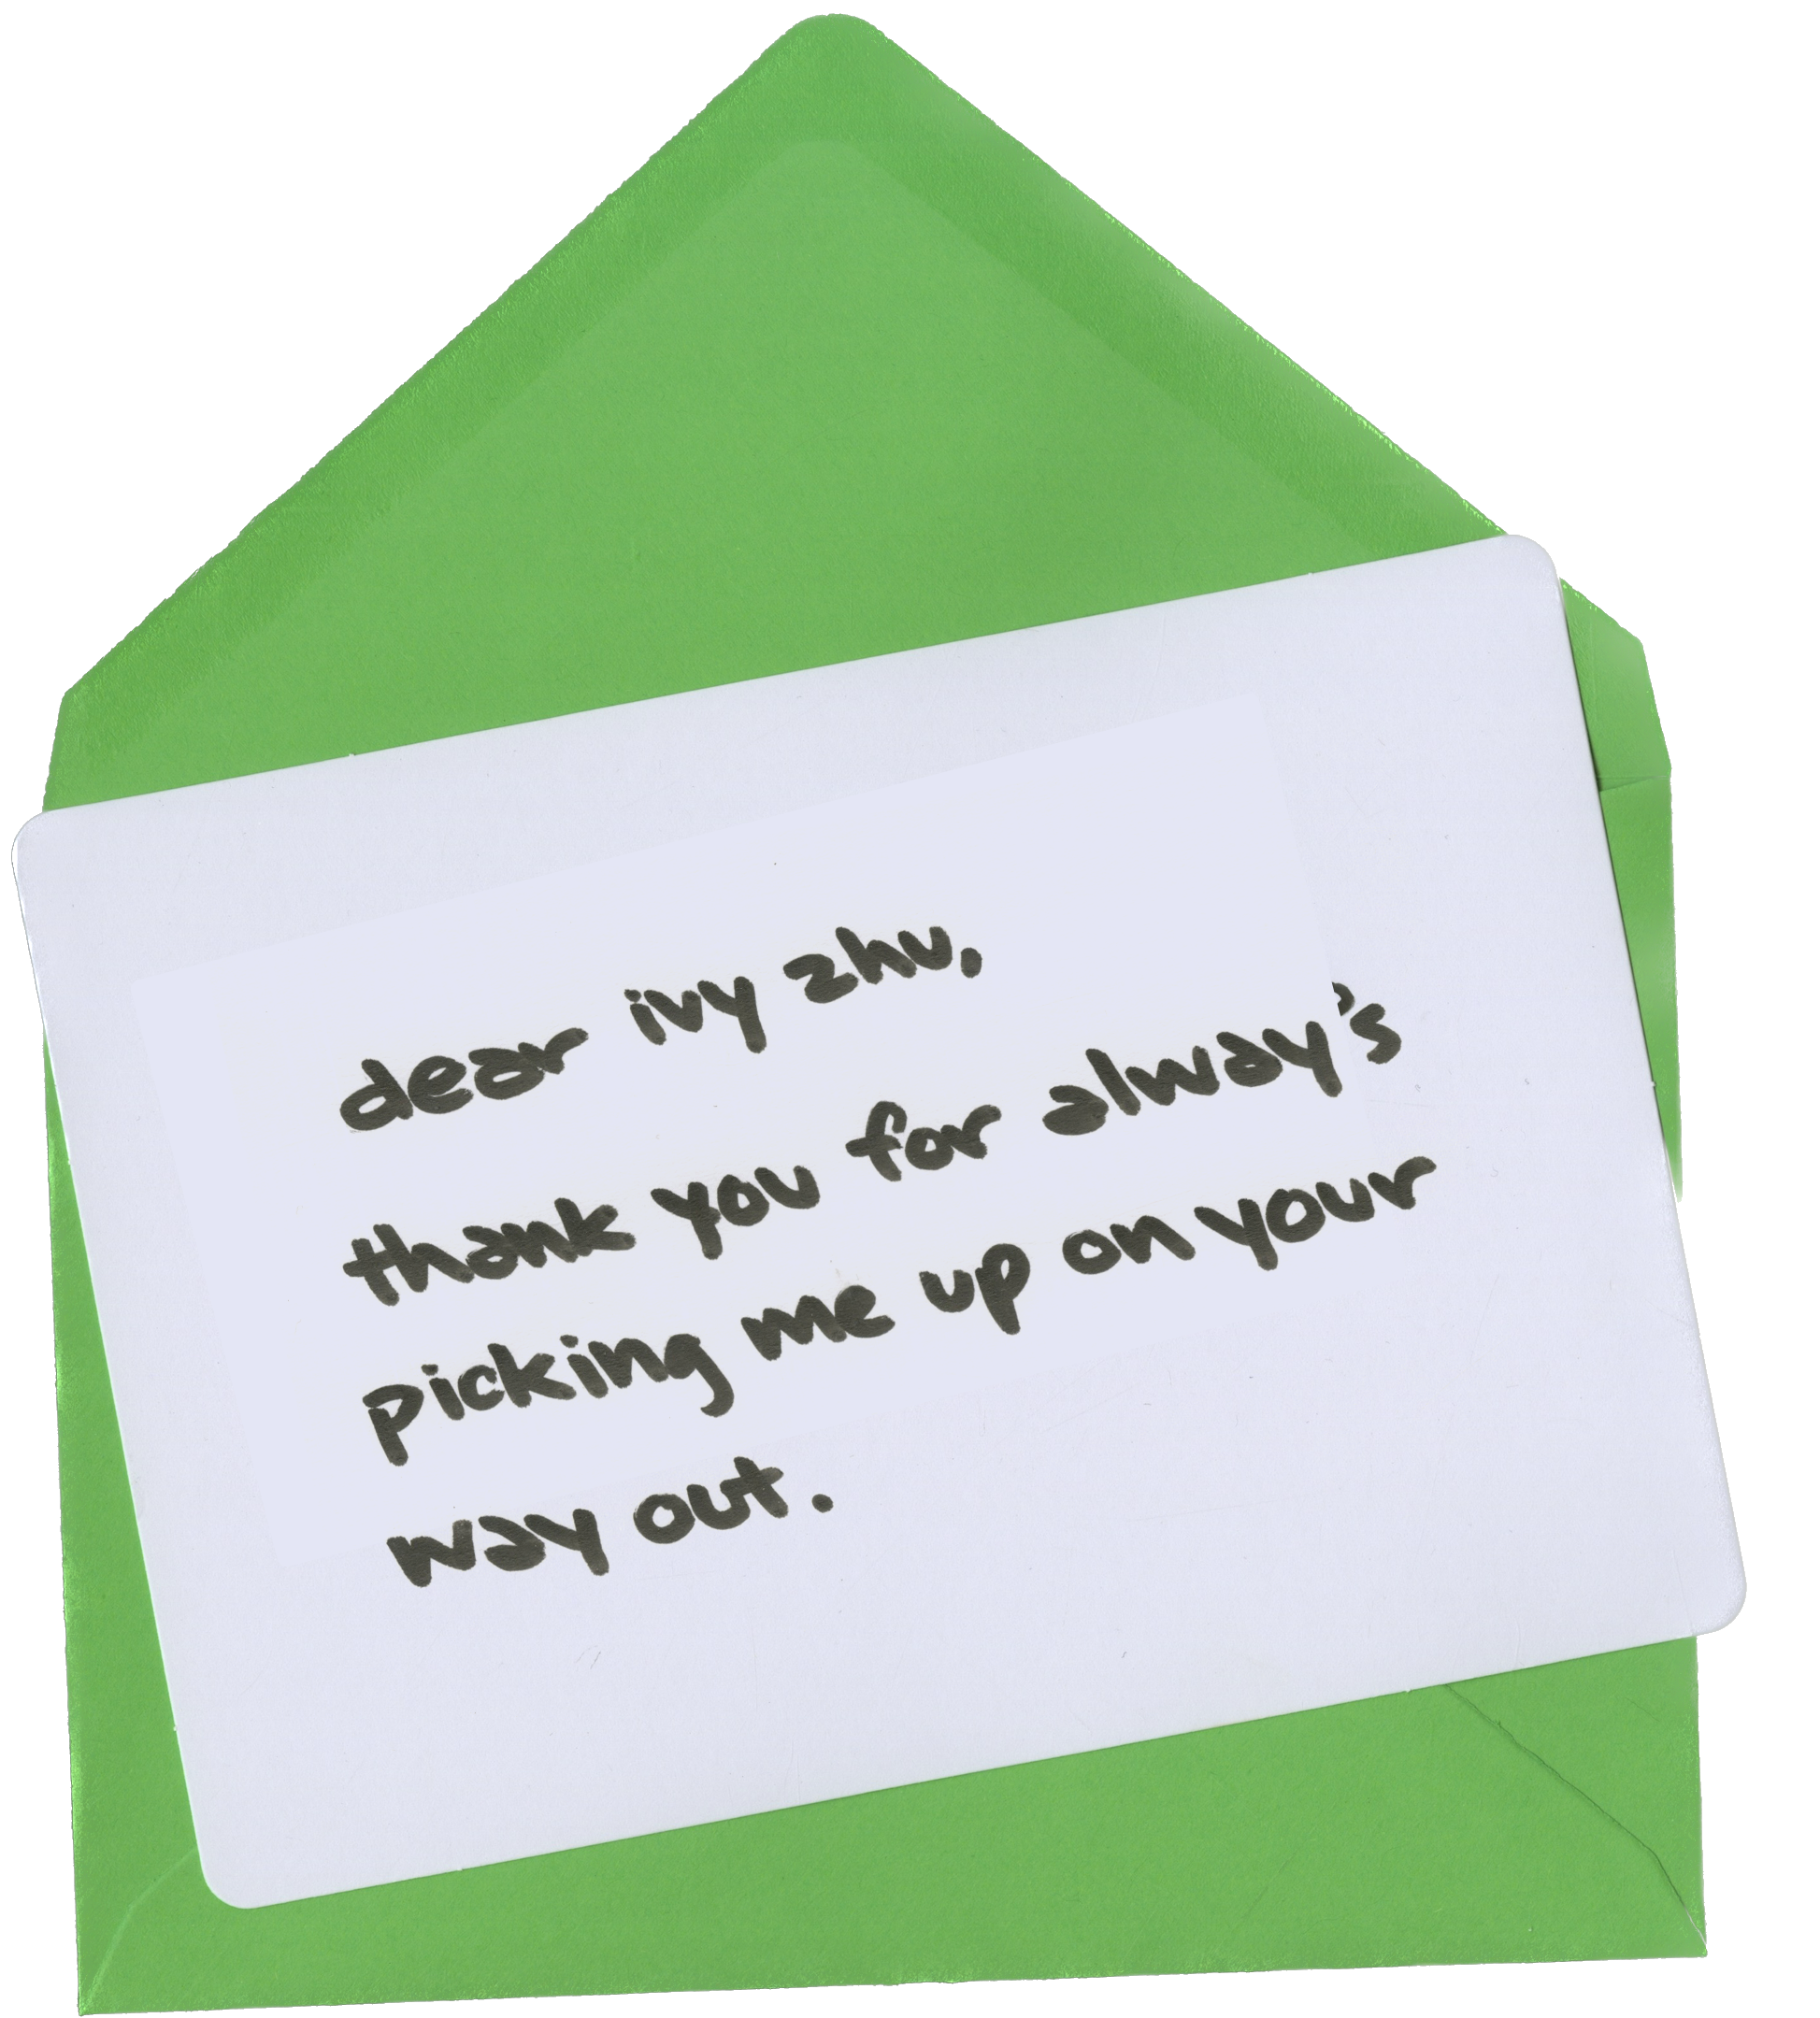 dear ivy zhu,
thank you for always's
picking me up on your
way out.